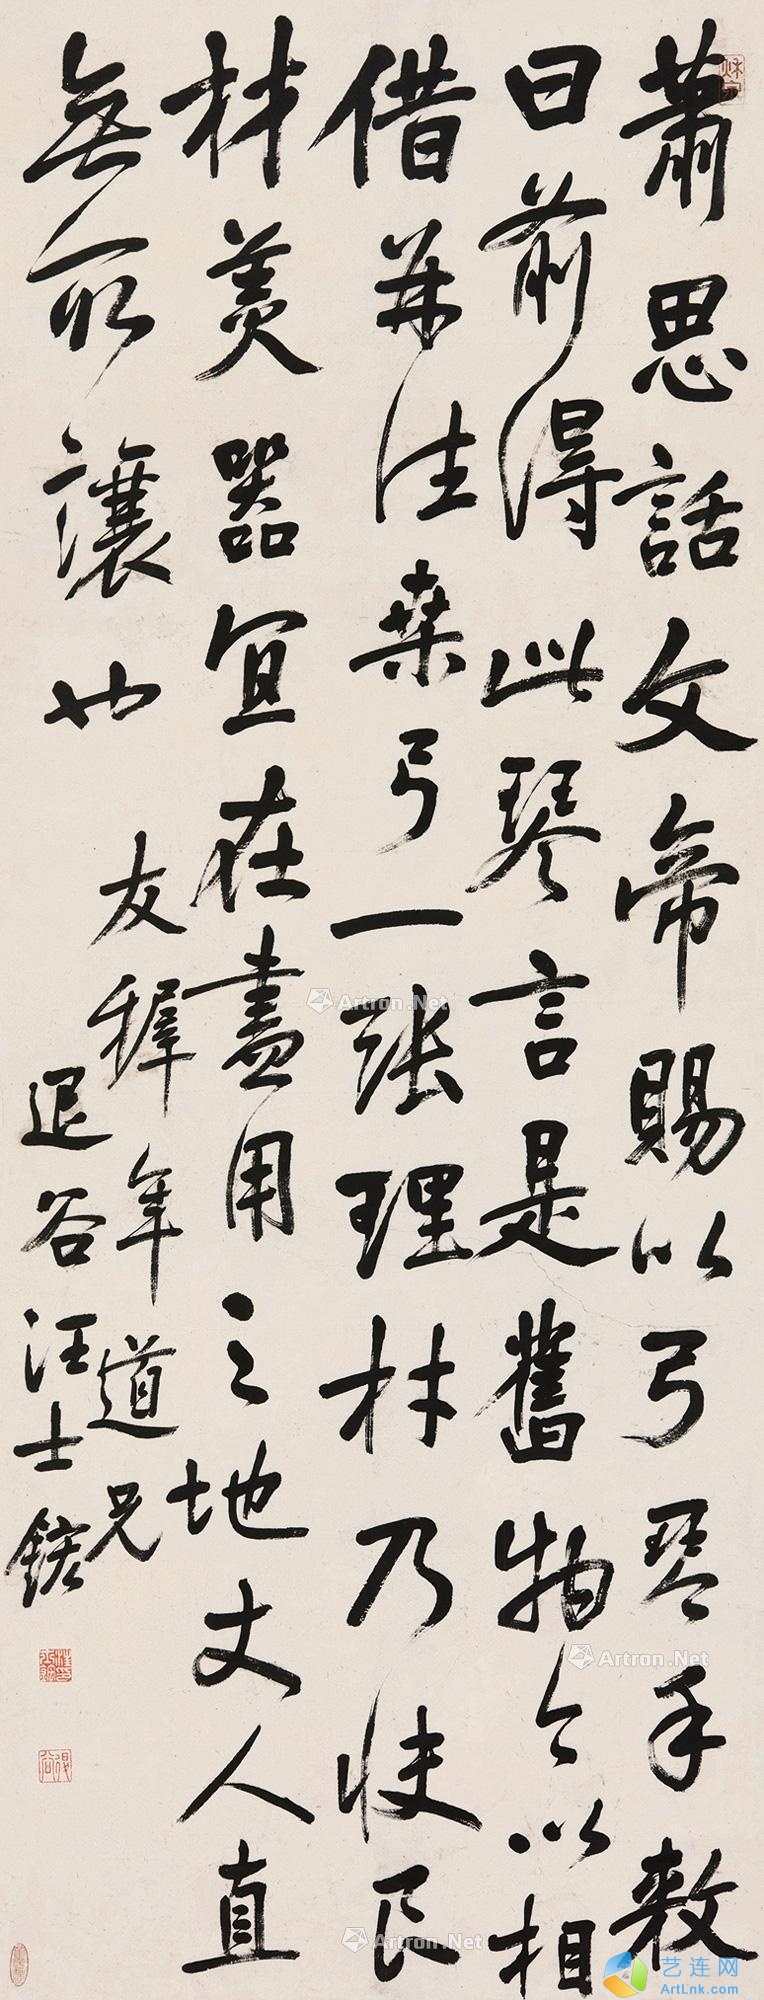 蕭思話文帝賜以弓琴手敕
曰前得此琴言是舊物今以相
借并往桑弓一張理材乃快良
材美器宜在盡用之地丈人直
無所讓也
友穉年道兄
退谷汪士鋐
Artron.Net
Artron.Net
Artron.Net
Artron.Net
艺连网
ArtLnk.com